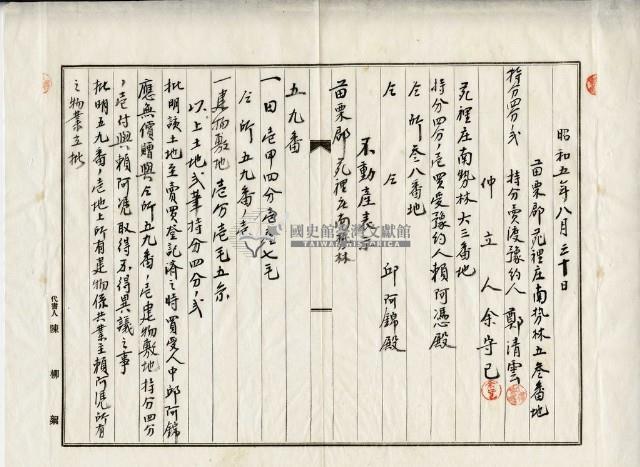 昭和五年八月三十日
苗栗郡苑裡庄南勢林五叁番地
持分四分ノ弍 持分賣渡豫約人 鄭清雲
仲立人 余守己
苑裡庄南勢林六三番地
持分四分ノ壱買受豫約人賴阿憑殿
仝所叁八番地
仝 仝 邱阿錦殿
不動産表示
苗栗郡苑裡庄南勢林
五九番
一田壱甲四分壱厘七毛
仝所五九番ノ壱
一建物敷地壱分壱毛五糸
以上土地弍筆持分四分ノ弍
批明該土地至賣買登記濟之時買受人中邱阿錦
應無償贈與仝所五九番ノ壱建物敷地持分四分
ノ壱付與賴阿憑取得不得異議之事
批明五九番ノ壱地上所有建物係共業主賴阿憑所有
之物業立批
代書人 陳柳
國史館臺灣文獻館
TAIWAN HISTORICA